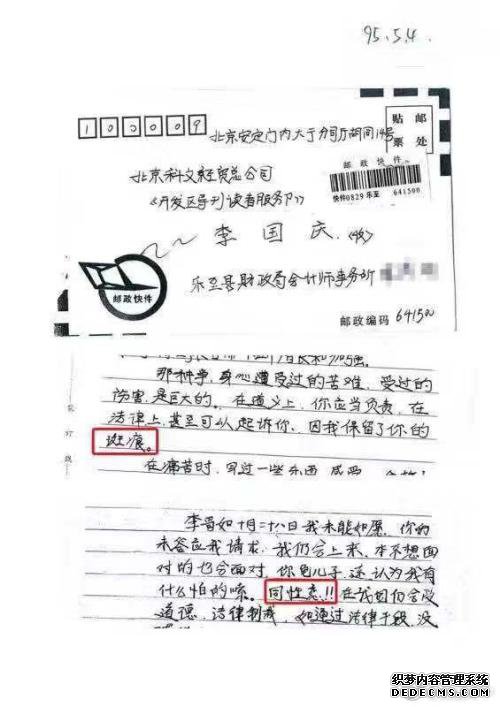 95.5.4.
100009
贴 邮
票 处
北京安定门内大于胡同14号
邮 政 快 件
快件0829 乐至 641500
北京科文经贸总公司
《开发区导刊读者服务部》
李 国 庆 (收)
乐至县财政局会计师事务所
邮政快件
邮政编码 641500
那种学,身心遭受过的苦难,受过的
伤害,是巨大的。在道义上,你应当负责,在
法律上,甚至可以起诉你。因我保留了你的
斑痕。
在痛苦时,写过一些东西
李 曾如十月二十八日我未能如愿。你
未答应我请求,我仍会上来,本不想面
对的也会面对,你龟儿子,还认为我有
什么怕的嗦。同性恋!!在
道德、法律制裁,如通过法律手段,没
织梦内容管理系统
DEDECMS.COM